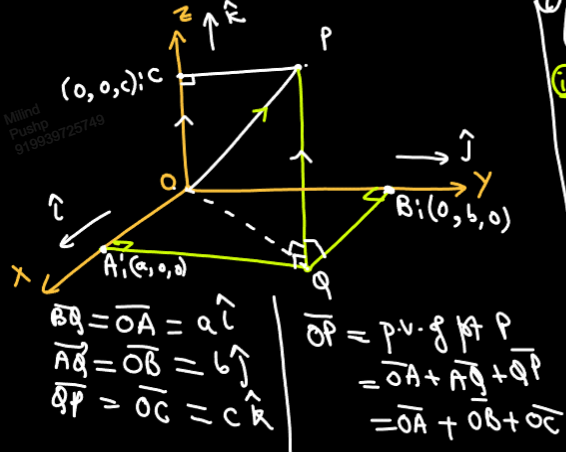 Z
k̂
P
(0,0,c); C
Milind
Pushp
919939725749
O
ĵ
Y
B; (0, b, 0)
î
A; (a, 0, 0)
X
Q
B̅Q̅ = O̅A̅ = a î
A̅Q̅ = O̅B̅ = b ĵ
Q̅P̅ = O̅C̅ = c k̂
O̅P̅ = p.v. of pt P
= O̅A̅ + A̅Q̅ + Q̅P̅
= O̅A̅ + O̅B̅ + O̅C̅